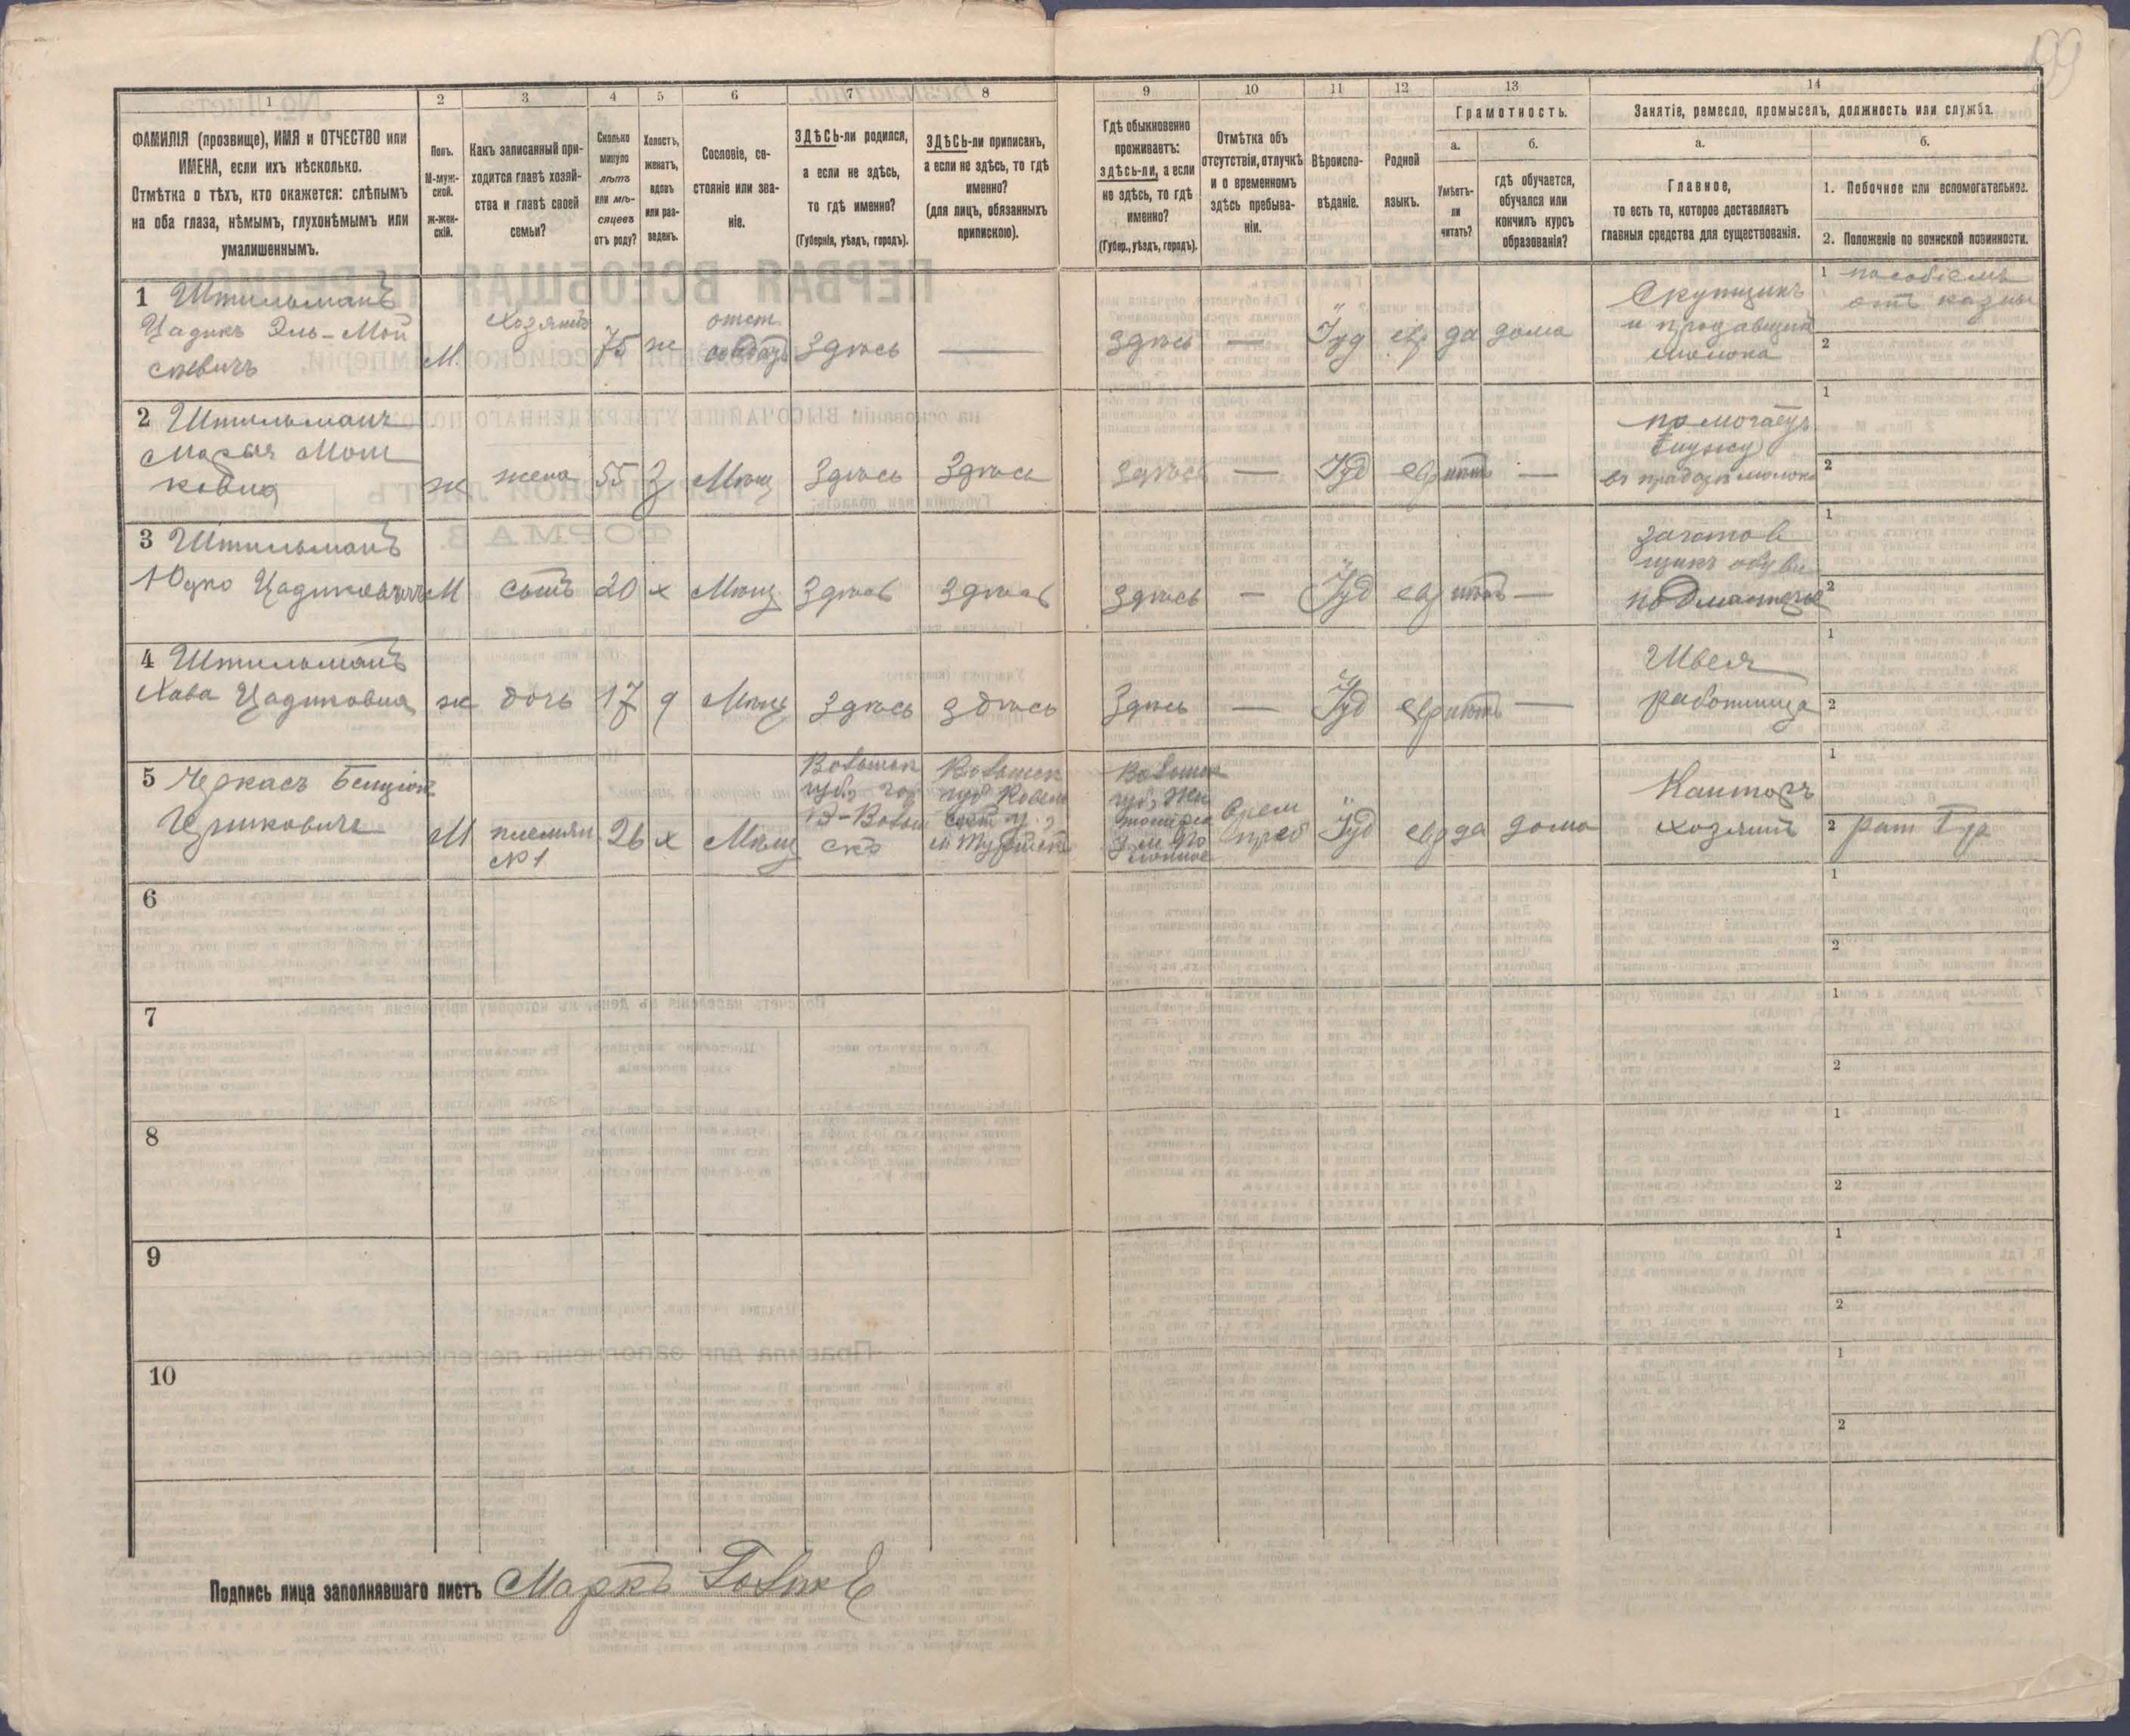 199
1 2 3 4 5 6 7 8 9 10 11 12 13 14
ФАМИЛІЯ (прозвище), ИМЯ и ОТЧЕСТВО или
ИМЕНА, если ихъ нѣсколько.
Отмѣтка о тѣхъ, кто окажется: слѣпымъ
на оба глаза, нѣмымъ, глухонѣмымъ или
умалишеннымъ.
Полъ.
М-муж-
ской.
ж-жен-
скій.
Какъ записанный при-
ходится главѣ хозяй-
ства и главѣ своей
семьи?
Сколько
минуло
лѣтъ
или мѣ-
сяцевъ
отъ роду?
Холостъ,
женатъ,
вдовъ
или раз-
веденъ.
Сословіе, со-
стояніе или зва-
ніе.
ЗДѢСЬ-ли родился,
а если не здѣсь,
то гдѣ именно?
(Губернія, уѣздъ, городъ).
ЗДѢСЬ-ли приписанъ,
а если не здѣсь, то гдѣ
именно?
(для лицъ, обязанныхъ
припискою).
Гдѣ обыкновенно
проживаетъ:
здѣсь-ли, а если
не здѣсь, то гдѣ
именно?
(Губер., уѣздъ, городъ).
Отмѣтка объ
отсутствіи, отлучкѣ
и о временномъ
здѣсь пребыва-
ніи.
Вѣроиспо-
вѣданіе.
Родной
языкъ.
Грамотность.
а.
Умѣетъ-
ли
читать?
б.
гдѣ обучается,
обучался или
кончилъ курсъ
образованія?
Занятіе, ремесло, промыселъ, должность или служба.
а.
Главное,
то есть то, которое доставляетъ
главныя средства для существованія.
б.
1. Побочное или вспомогательное.
2. Положеніе по воинской повинности.
1 Штильманъ
Цадикъ Эль-Мой
сѣевичъ
М.
Хозяинъ
75
ж
отст.
солдатъ
Здѣсь
—
Здѣсь
—
Іуд
евр
да
дома
Скупщикъ
и продавецъ
молока
1 пособіемъ
отъ казны
2
2 Штильманъ
Мош
ковна
ж
жена
55
З
Мѣщ
Здѣсь
Здѣсь
Здѣсь
—
Іуд
евр
нѣтъ
—
помогаетъ
мужу
въ продажѣ молока
1
2
3 Штильманъ
Юдко Цадиковичъ
М
сынъ
20
х
Мѣщ.
Здѣсь
Здѣсь
Здѣсь
—
Іуд
евр
нѣтъ
—
заготов
щикъ обуви
подмастерье
1
2
4 Штильманъ
Хава Цадиковна
ж
дочь
17
д
Мѣщ
Здѣсь
Здѣсь
Здѣсь
—
Іуд
евр
нѣтъ
—
Швея
работница
1
2
5 Черкасъ Бенціонъ
Ицковичъ
М
племян
№1
26
х
Мѣщ
Волынск
губ., гор
В-Волын
скъ
Волынск
губ Ковель
м Турійскъ
Волынск
губ,
Врем
преб
Іуд
евр
да
дома
Канторъ
хозяинъ
1
2 рат
6
1
2
7
1
2
8
1
2
9
1
2
10
1
2
Подпись лица заполнявшаго листъ Маркъ